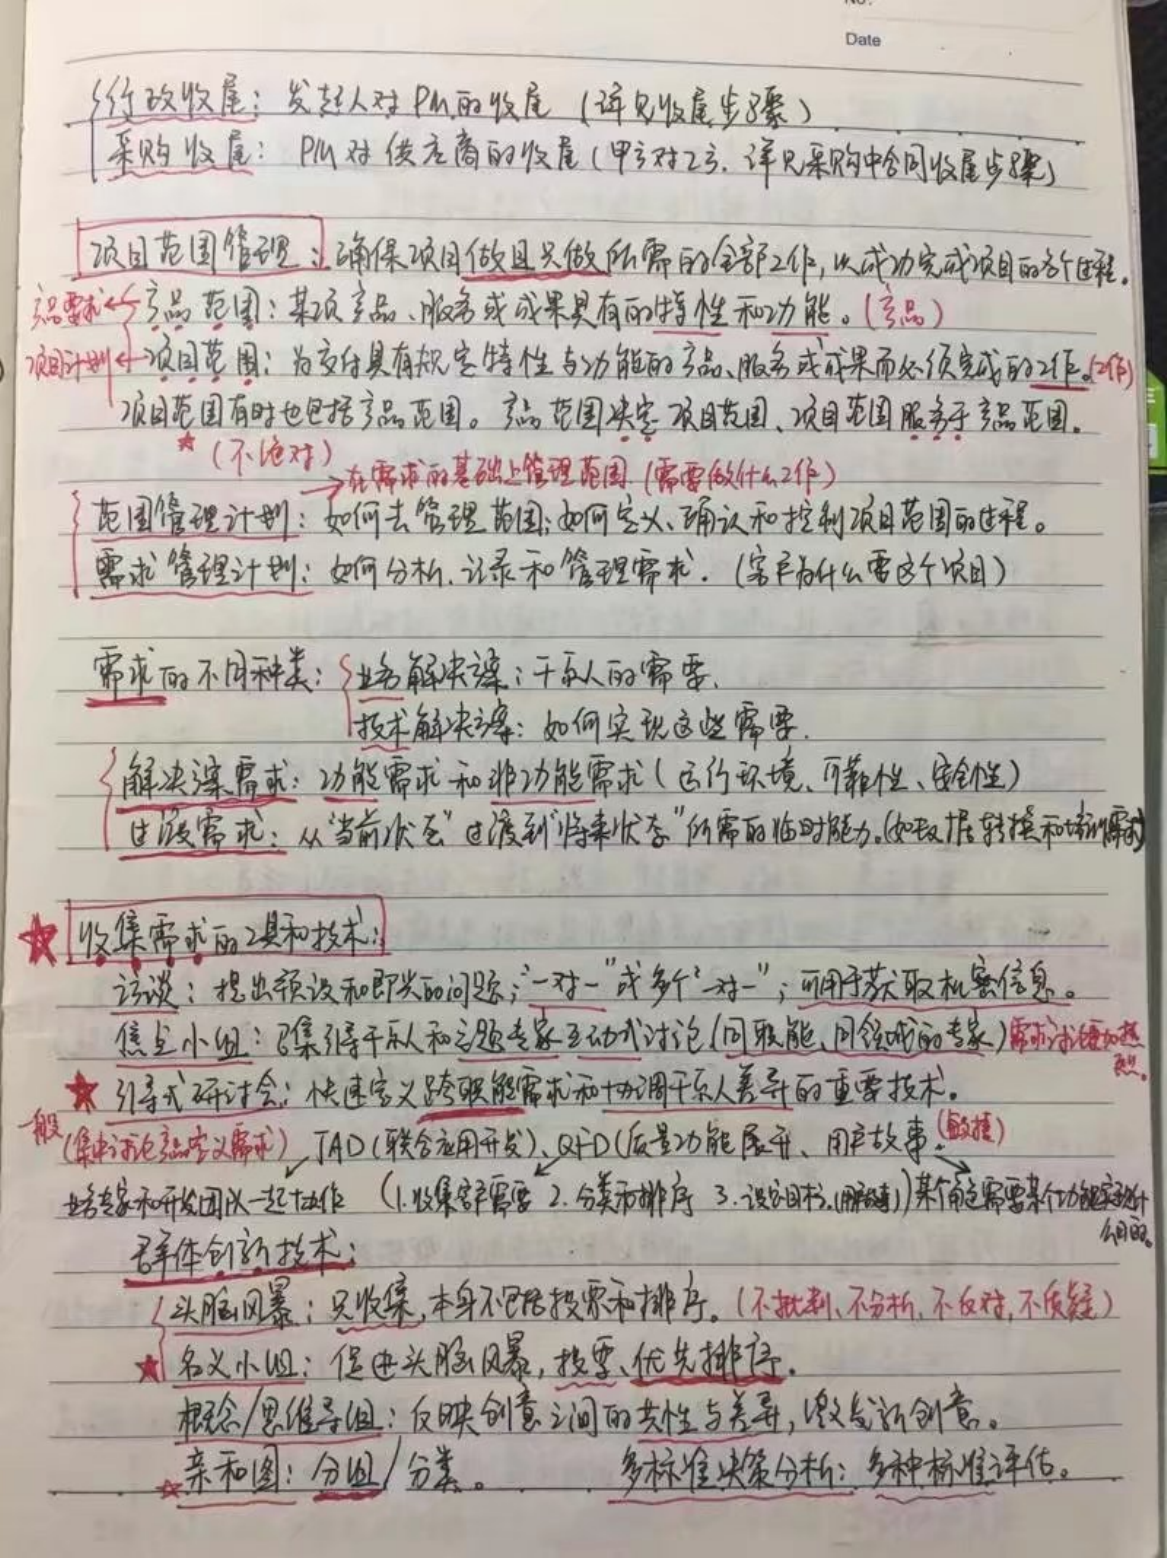 No:
Date
行政收尾：发起人对PM的收尾（详见收尾步骤）
采购收尾：PM对供应商的收尾（甲方对乙方.详见采购中合同收尾步骤）
项目范围管理：确保项目做且只做所需的全部工作，以成功完成项目的各个过程。
产品需求←产品范围：某项产品、服务或成果具有的特性和功能。（产品）
项目计划←项目范围：为交付具有规定特性与功能的产品、服务或成果而必须完成的工作。（工作）
项目范围有时也包括产品范围。产品范围决定项目范围、项目范围服务于产品范围。
★（不绝对）
→在需求的基础上管理范围.（需要做什么工作）
范围管理计划：如何去管理范围；如何定义、确认和控制项目范围的过程。
需求管理计划：如何分析.记录和管理需求.（客户为什么要这个项目）
需求的不同种类：业务解决方案：干系人的需要.
技术解决方案：如何实现这些需要.
解决方案需求：功能需求和非功能需求（运行环境、可靠性、安全性）
过渡需求：从“当前状态”过渡到“将来状态”所需的临时能力.（如数据转换和培训需求）
★ 收集需求的工具和技术：
访谈：提出预设和即兴的问题；“一对一”或多个“一对一”；可用于获取机密信息。
焦点小组：召集引导干系人和主题专家互动式讨论（同职能、同领域的专家）需求讨论更加热烈。
★ 引导式研讨会：快速定义跨职能需求和协调干系人差异的重要技术。
一般（集中讨论产品定义需求） JAD（联合应用开发）、QFD（质量功能展开、用户故事.（敏捷）
业务专家和开发团队一起协作 （1.收集客户需要 2.分类和排序 3.设定目标.）某个角色需要某个功能
么目的。
群体创新技术：
头脑风暴：只收集，本身不包括投票和排序。（不批判、不分析、不反对，不质疑）
★ 名义小组：促进头脑风暴，投票、优先排序.
概念/思维导组：反映创意之间的共性与差异，激发新创意。
★亲和图：分组/分类。 多标准决策分析：多种标准评估。